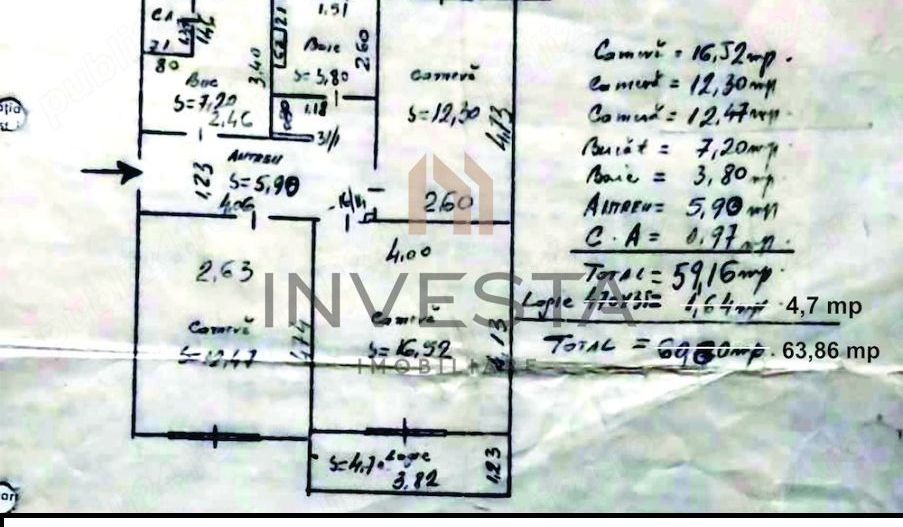 1.51
CA
21
80
3.40
Baie
S=3,80
2.60
1.18
Buc
S=7,20
2.46
Cameră
S=12,30
4.13
2.60
Antreu
S=5,90
1.23
4.06
4.00
2,63
Cameră
S=12,47
4.74
Cameră
S=16,52
4.13
S=4,70 Logie
3,82
1.23
INVESTA
IMOBILIARE
Cameră = 16,52 mp.
Cameră = 12,30 mp
Cameră = 12,47 mp
Bucăt = 7,20 mp
Baie = 3,80 mp
Antreu = 5,90 mp
C.A = 0,97 mp
Total = 59,16 mp.
Logie = 1,64 mp 4,7 mp
Total = mp. 63,86 mp